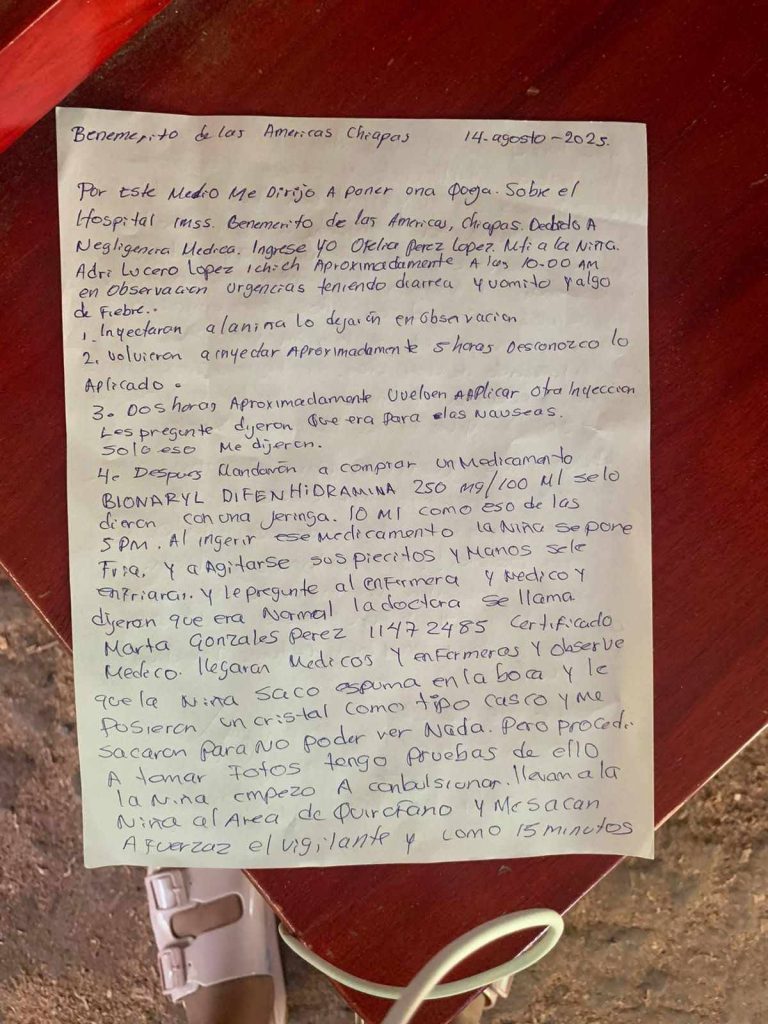 Benemerito de las Americas Chiapas 14-agosto-2025.
Por Este Medio Me Dirijo A poner una Queja. Sobre el
Hospital imss. Benemerito de las Americas, Chiapas. Debido A
Negligencia Medica. Ingrese yo Ofelia perez Lopez. Mti a la Niña.
Adri Lucero Lopez Ichich Aproximadamente A las 10:00 AM
en observacion Urgencias teniendo diarrea y vomito y algo
de Fiebre..
1. Inyectaron a la nina lo dejarón en observacion
2. volvieron a inyectar Aproximadamente 5 horas Desconozco lo
Aplicado.
3. Dos horas Aproximadamente vuelven AApplicar otra Inyeccion
Les pregunte dijeron que era para las Nauseas.
Solo eso Me dijeron.
4. Despues Mandarón a comprar un Medicamento
BIONARYL DIFENHIDRAMINA 250 mg/100 Ml se lo
dieron con una Jeringa. 10 Ml como eso de las
5 PM. Al ingerir ese Medicamento la Niña se pone
Fria. y a Agitarse sus piecitos y Manos se le
enfriaron. y le pregunte al enfermera y Medico y
dijeron que era Normal la doctora se llama
Marta Gonzales Perez 11472485 Certificado
Medico. llegaron Medicos y enfermeras y observe
que la Niña saco espuma en la boca y le
posieron un cristal como tipo casco y me
sacaron para No poder ver Nada. Pero procedi.
A tomar Fotos tengo pruebas de ello
la Niña empezo A conbulsionar. llevan a la
Niña al Area de Quirofano y Me sacan
A fuerzaz el vigilante y como 15 minutos